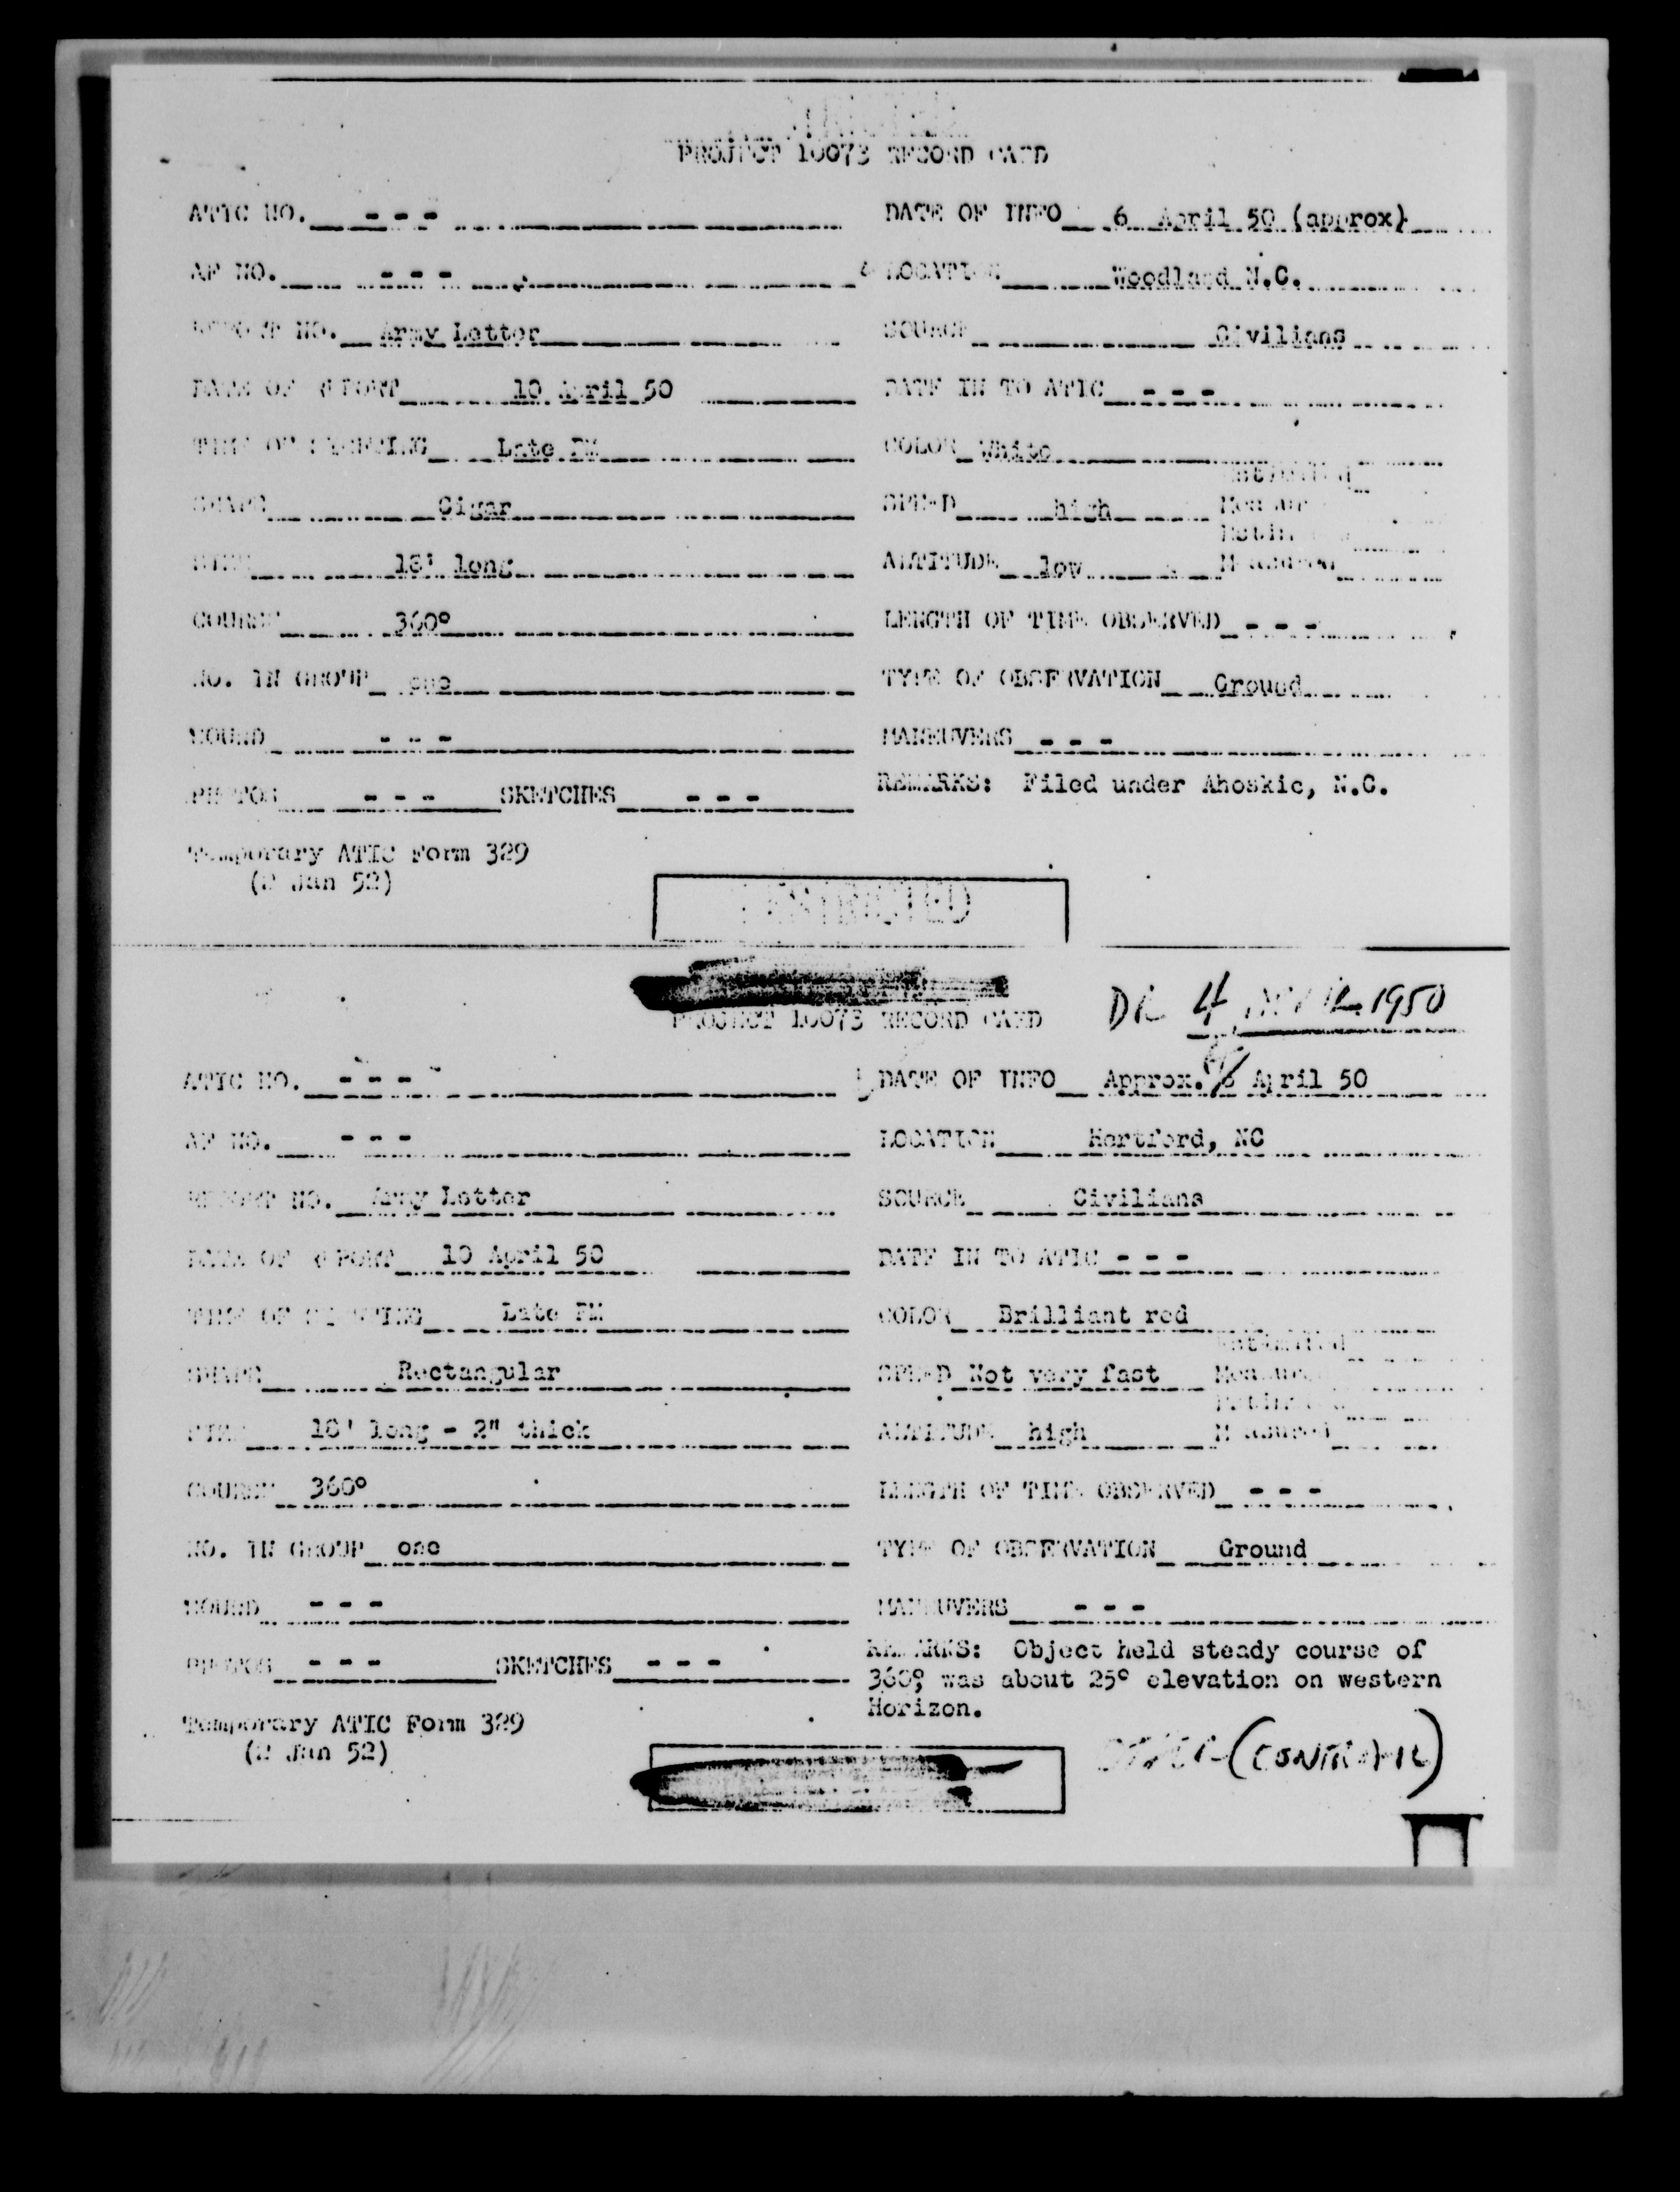 PROJECT 10073 RECORD CARD
ATIC NO. - - - DATE OF INFO 6 April 50 (approx)
AF NO. - - - LOCATION Woodland N.C.
REPORT NO. Army Letter SOURCE Civilians
DATE OF REPORT 10 April 50 DATE IN TO ATIC - - -
TIME OF SIGHTING Late PM COLOR White
Estimated
SHAPE Cigar SPEED high Measured
Estimated
SIZE 18' long ALTITUDE low Measured
COURSE 360° LENGTH OF TIME OBSERVED - - -
NO. IN GROUP one TYPE OF OBSERVATION Ground
SOUND - - - MANEUVERS - - -
PHOTOS - - - SKETCHES - - - REMARKS: Filed under Ahoskie, N.C.
Temporary ATIC Form 329
(2 Jan 52)
RESTRICTED
4 1950
PROJECT 10073 RECORD CARD
ATIC NO. - - - DATE OF INFO Approx. April 50
AF NO. - - - LOCATION Hertford, NC
REPORT NO. Army Letter SOURCE Civilians
DATE OF REPORT 10 April 50 DATE IN TO ATIC - - -
TIME OF SIGHTING Late PM COLOR Brilliant red
Estimated
SHAPE Rectangular SPEED Not very fast Measured
Estimated
SIZE 18' long - 2" thick ALTITUDE high Measured
COURSE 360° LENGTH OF TIME OBSERVED - - -
NO. IN GROUP one TYPE OF OBSERVATION Ground
SOUND - - - MANEUVERS - - -
PHOTOS - - - SKETCHES - - - REMARKS: Object held steady course of
360° was about 25° elevation on western
Horizon.
Temporary ATIC Form 329
(2 Jan 52)
(CONTRAIL)